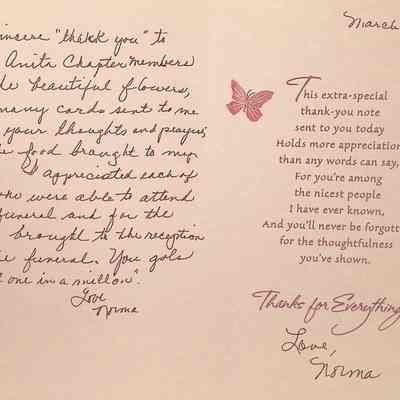 "thank you" to
Anita Chapter members
beautiful flowers,
many cards sent to me
your thoughts and prayers,
food brought to my
I appreciated each of
who were able to attend
funeral and for the
brought to the reception
funeral. You gals
one in a millon".
Love
Norma
March
This extra-special
thank-you note
sent to you today
Holds more appreciation
than any words can say,
For you're among
the nicest people
I have ever known,
And you'll never be forgotten
for the thoughtfulness
you've shown.
Thanks for Everything
Love,
Norma